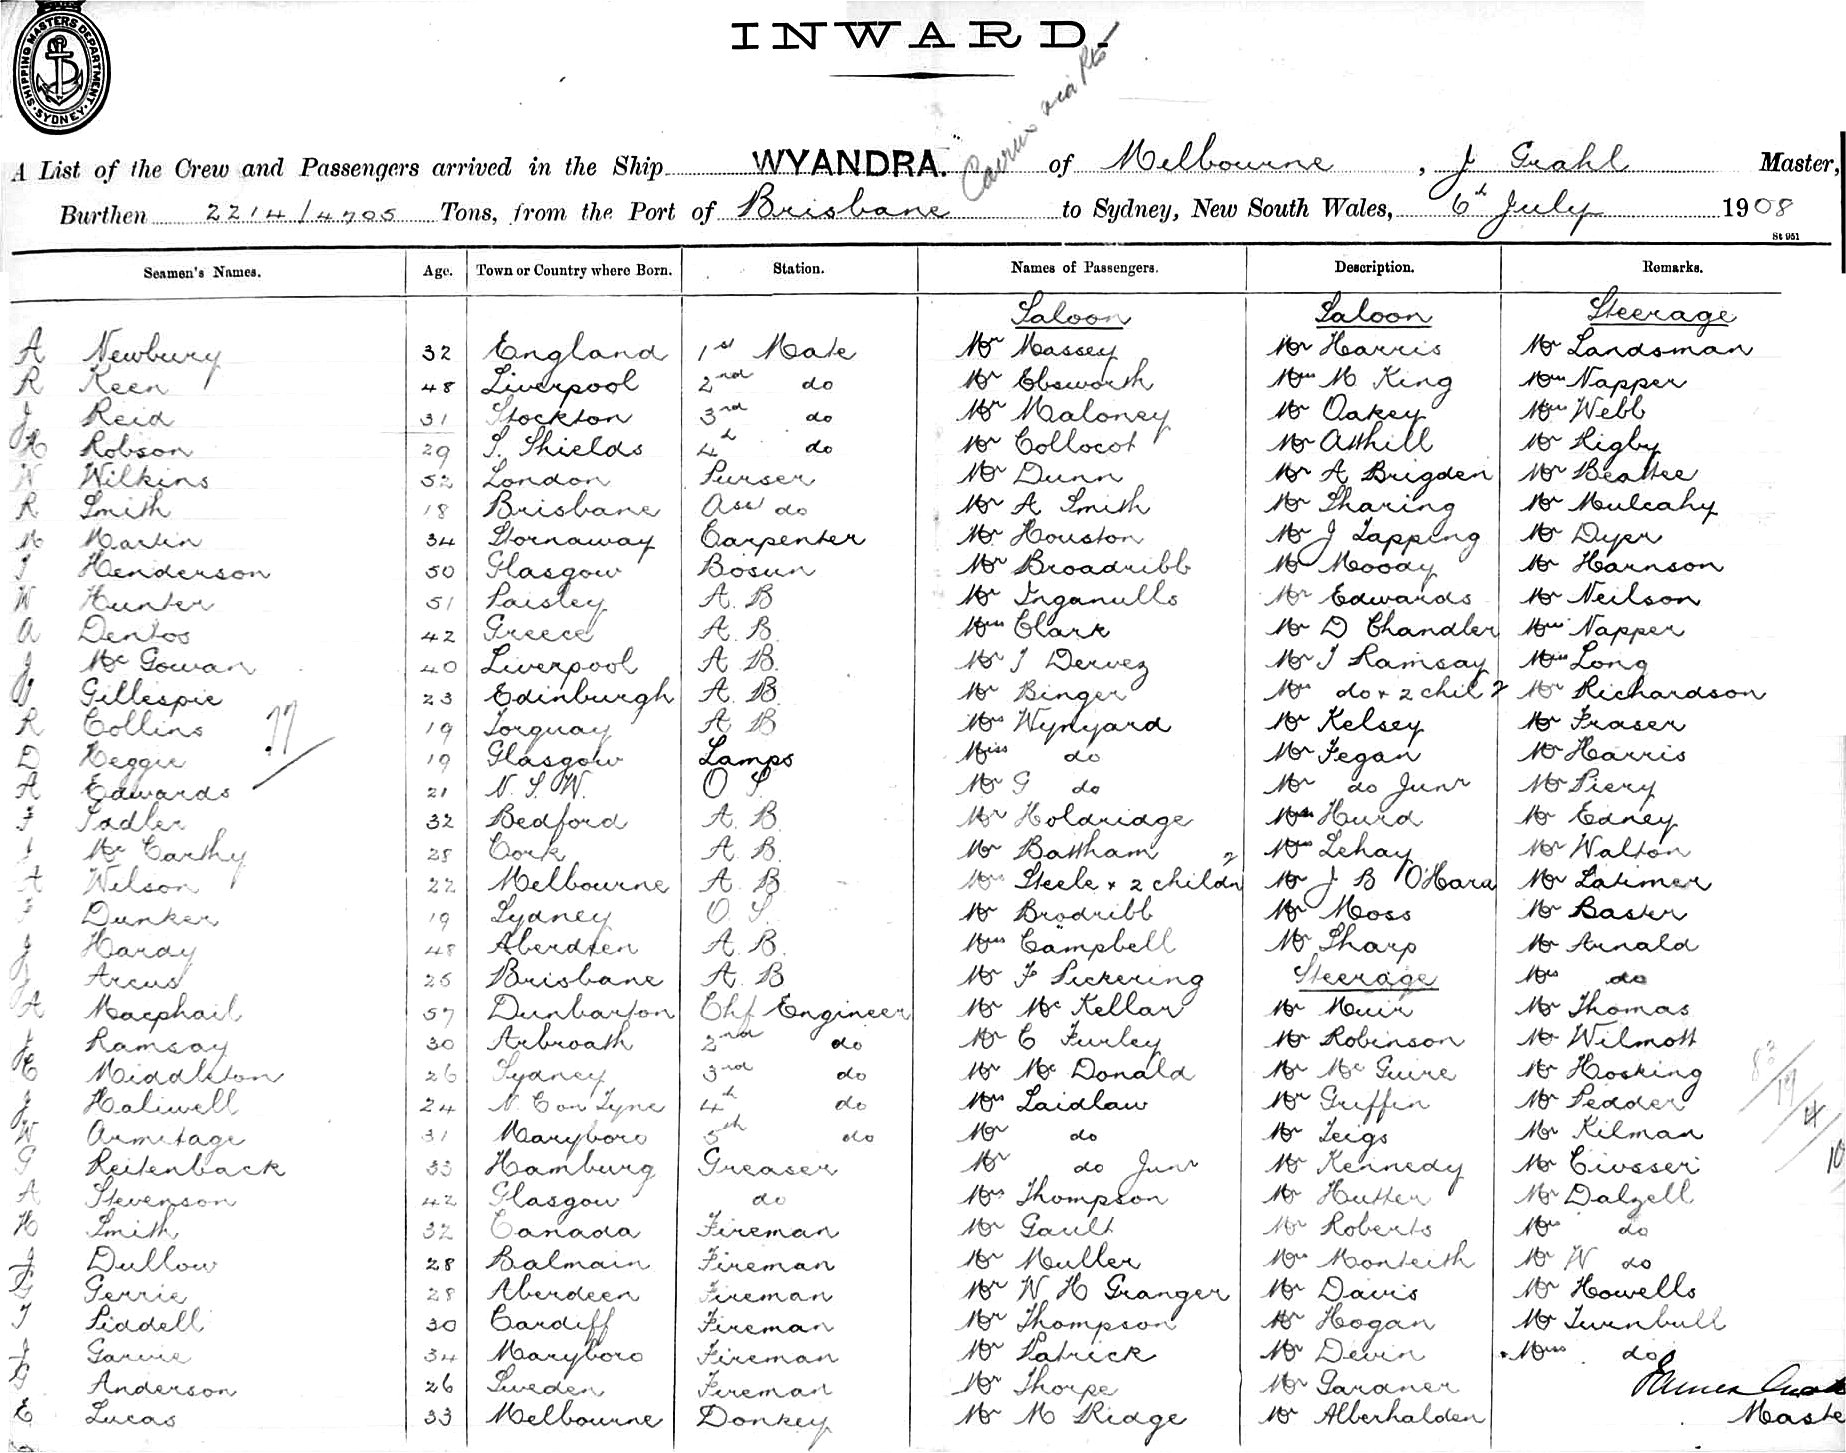 SHIPPING MASTERS DEPARTMENT
SYDNEY
INWARD.
Cairns via Pts
A List of the Crew and Passengers arrived in the Ship WYANDRA. of Melbourne, J Grahl Master,
Burthen 2214/4705 Tons, from the Port of Brisbane to Sydney, New South Wales, 6th July 1908
St 951
Seamen's Names. Age. Town or Country where Born. Station. Names of Passengers. Description. Remarks.
Saloon Saloon Steerage
A Newbury 32 England 1st Mate Mr Massey Mr Harris Mr Landsman
R Keen 48 Liverpool 2nd do Mr Ebsworth Mrs M King Mrs Napper
J Reid 31 Stockton 3rd do Mr Maloney Mr Oakey Mrs Webb
H Robson 29 S. Shields 4th do Mr Collocot Mr Atthill Mr Rigby
W Wilkins 52 London Purser Mr Dunn Mr A Brigden Mr Beattee
R Smith 18 Brisbane Asst do Mr A Smith Mr Sharing Mr Mulcahy
M Martin 34 Stornaway Carpenter Mr Houston Mr J Tapping Mr Dyer
J Henderson 50 Glasgow Bosun Mr Broadribb Mr Moody Mr Harnson
W Hunter 51 Paisley A. B Mr Inganulls Mr Edwards Mr Neilson
A Dentos 42 Greece A. B. Mrs Clark Mr D Chandler Mrs Napper
J McGowan 40 Liverpool A. B. Mr J Dervez Mr J Ramsay Miss Long
J Gillespie 23 Edinburgh A. B. Mr Binger Mrs do + 2 chil 2 Mr Richardson
R Collins 19 Torquay A B Mrs Wynyard Mr Kelsey Mr Fraser
77
D Heggie 19 Glasgow Lamps Miss do Mr Fegan Mr Harris
A Edwards 21 N. S. W. O S. Mr G do Mr do Junr Mr Piery
F Sadler 32 Bedford A. B. Mr Holdridge Mrs Hurd Mr Edney
J McCarthy 28 Cork A. B. Mr Battham Mrs Lehay Mr Walton
A Wilson 22 Melbourne A. B. Mrs Steele + 2 childn 2 Mr J B O'Hara Mr Latimer
F Dunker 19 Sydney O. S. Mr Brodribb Mr Moss Mr Baster
J Hardy 48 Aberdeen A. B. Mrs Campbell Mr Sharp Mr Arnald
J Arcus 25 Brisbane A. B Mr F Pickering Steerage Mrs do
A Macphail 57 Dunbarton Chf Engineer Mr McKellar Mr Muir Mr Thomas
J Ramsay 30 Arbroath 2nd do Mr C Furley Mr Robinson Mr Wilmott
C Middleton 26 Sydney 3rd do Mr McDonald Mr McGuire Mr Hosking
J Haliwell 24 N. C on Tyne 4th do Mrs Laidlaw Mr Griffin Mr Pedder
W Armitage 31 Maryboro 5th do Mr do Mr Teigs Mr Kilman
G Reitenback 33 Hamburg Greaser Mr do Junr Mr Kennedy Mr Civsseri
A Stevenson 42 Glasgow do Mrs Thompson Mr Hutter Mr Dalzell
H Smith 32 Canada Fireman Mr Gault Mr Roberts Mrs do
J Dullow 28 Balmain Fireman Mr Muller Mrs Monteith Mr W do
G Gerrie 28 Aberdeen Fireman Mr W H Granger Mr Davis Mr Howells
T Siddell 30 Cardiff Fireman Mr Thompson Mr Hogan Mr Turnbull
J Garvie 34 Maryboro Fireman Mr Patrick Mr Devin Mrs do
G Anderson 26 Sweden Fireman Mr Thorpe Mr Gardner
E Lucas 33 Melbourne Donkey Mr M Ridge Mr Alberhalden Maste